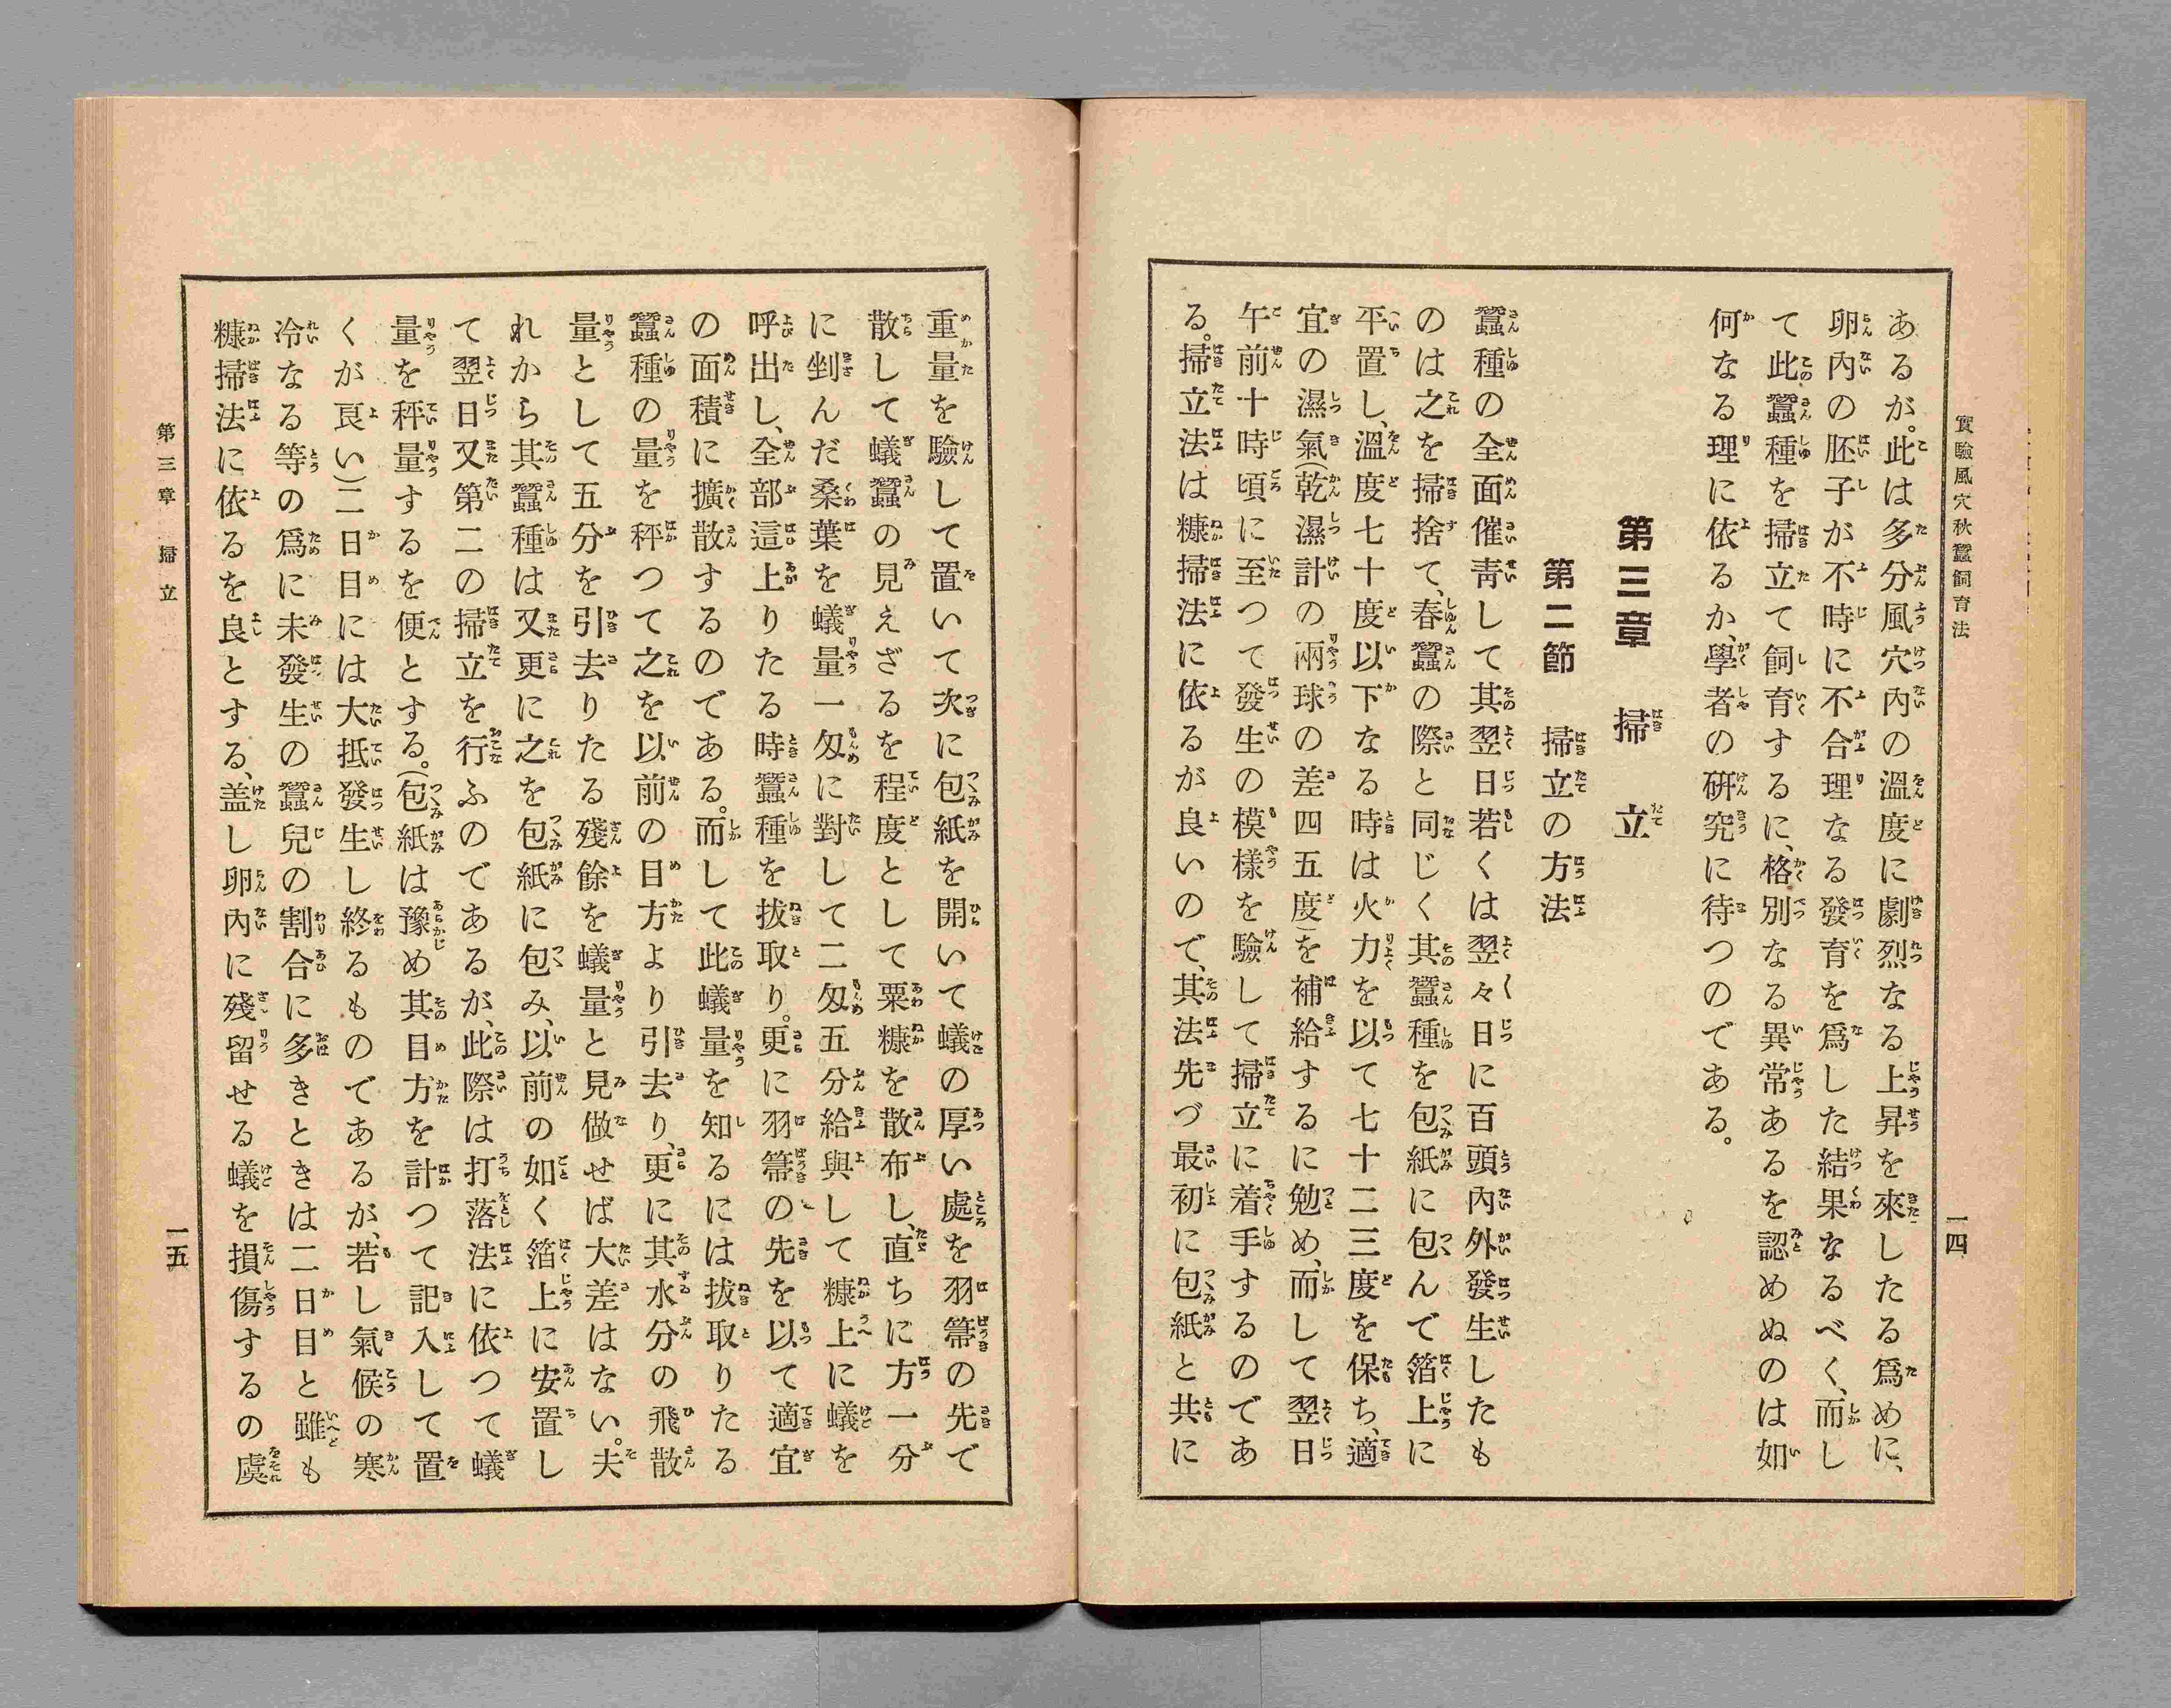 實驗風穴秋蠶飼育法
一四
あるが。此は多分風穴內の溫度に劇烈なる上昇を來したる爲めに、
卵內の胚子が不時に不合理なる發育を爲した結果なるべく、而し
て此蠶種を掃立て飼育するに、格別なる異常あるを認めぬのは如
何なる理に依るか、學者の硏究に待つのである。
第三章　掃立
第二節　掃立の方法
蠶種の全面催靑して其翌日若くは翌々日に百頭內外發生したも
のは之を掃捨て、春蠶の際と同じく其蠶種を包紙に包んで箔上に
平置し、溫度七十度以下なる時は火力を以て七十二三度を保ち、適
宜の濕氣(乾濕計の兩球の差四五度)を補給するに勉め、而して翌日
午前十時頃に至つて發生の模樣を驗して掃立に着手するのであ
る。掃立法は糠掃法に依るが良いので、其法先づ最初に包紙と共に
重量を驗して置いて次に包紙を開いて蟻の厚い處を羽箒の先で
散して蟻蠶の見えざるを程度として粟糠を散布し、直ちに方一分
に剉んだ桑葉を蟻量一匁に對して二匁五分給與して糠上に蟻を
呼出し、全部這上りたる時蠶種を拔取り。更に羽箒の先を以て適宜
の面積に擴散するのである。而して此蟻量を知るには拔取りたる
蠶種の量を秤つて之を以前の目方より引去り、更に其水分の飛散
量として五分を引去りたる殘餘を蟻量と見做せば大差はない。夫
れから其蠶種は又更に之を包紙に包み、以前の如く箔上に安置し
て翌日又第二の掃立を行ふのであるが、此際は打落法に依つて蟻
量を秤量するを便とする。(包紙は豫め其目方を計つて記入して置
くが良い)二日目には大抵發生し終るものであるが、若し氣候の寒
冷なる等の爲に未發生の蠶兒の割合に多きときは二日目と雖も
糠掃法に依るを良とする、盖し卵內に殘留せる蟻を損傷するの虞
第三章　掃立
一五